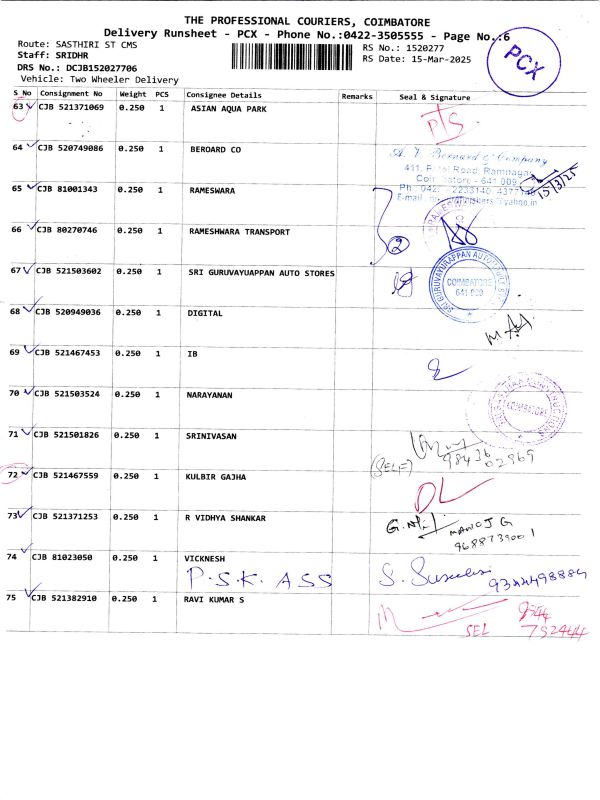 THE PROFESSIONAL COURIERS, COIMBATORE
Delivery Runsheet - PCX - Phone No.:0422-3505555 - Page No.:6
Route: SASTHIRI ST CMS
RS No.: 1520277
Staff: SRIDHR
RS Date: 15-Mar-2025
DRS No.: DCJB152027706
Vehicle: Two Wheeler Delivery
PCX
S No Consignment No Weight PCS Consignee Details Remarks Seal & Signature
63 CJB 521371069 0.250 1 ASIAN AQUA PARK
64 CJB 520749086 0.250 1 BEROARD CO
A. J. Bernard & Company
Road, Ramnagar
641 009
15/3/25
65 CJB 81001343 0.250 1 RAMESWARA
66 CJB 80270746 0.250 1 RAMESHWARA TRANSPORT
2
67 CJB 521503602 0.250 1 SRI GURUVAYUAPPAN AUTO STORES
SRI GURUVAYURAPPAN AUTO
COIMBATORE
68 CJB 520949036 0.250 1 DIGITAL
69 CJB 521467453 0.250 1 IB
70 CJB 521503524 0.250 1 NARAYANAN
COIMBATORE
71 CJB 521501826 0.250 1 SRINIVASAN
(SELF) 98436 02969
72 CJB 521467559 0.250 1 KULBIR GAJHA
DL
73 CJB 521371253 0.250 1 R VIDHYA SHANKAR
MANOJ G
9688739001
74 CJB 81023050 0.250 1 VICKNESH
P.S.K. ASS
75 CJB 521382910 0.250 1 RAVI KUMAR S
SEL